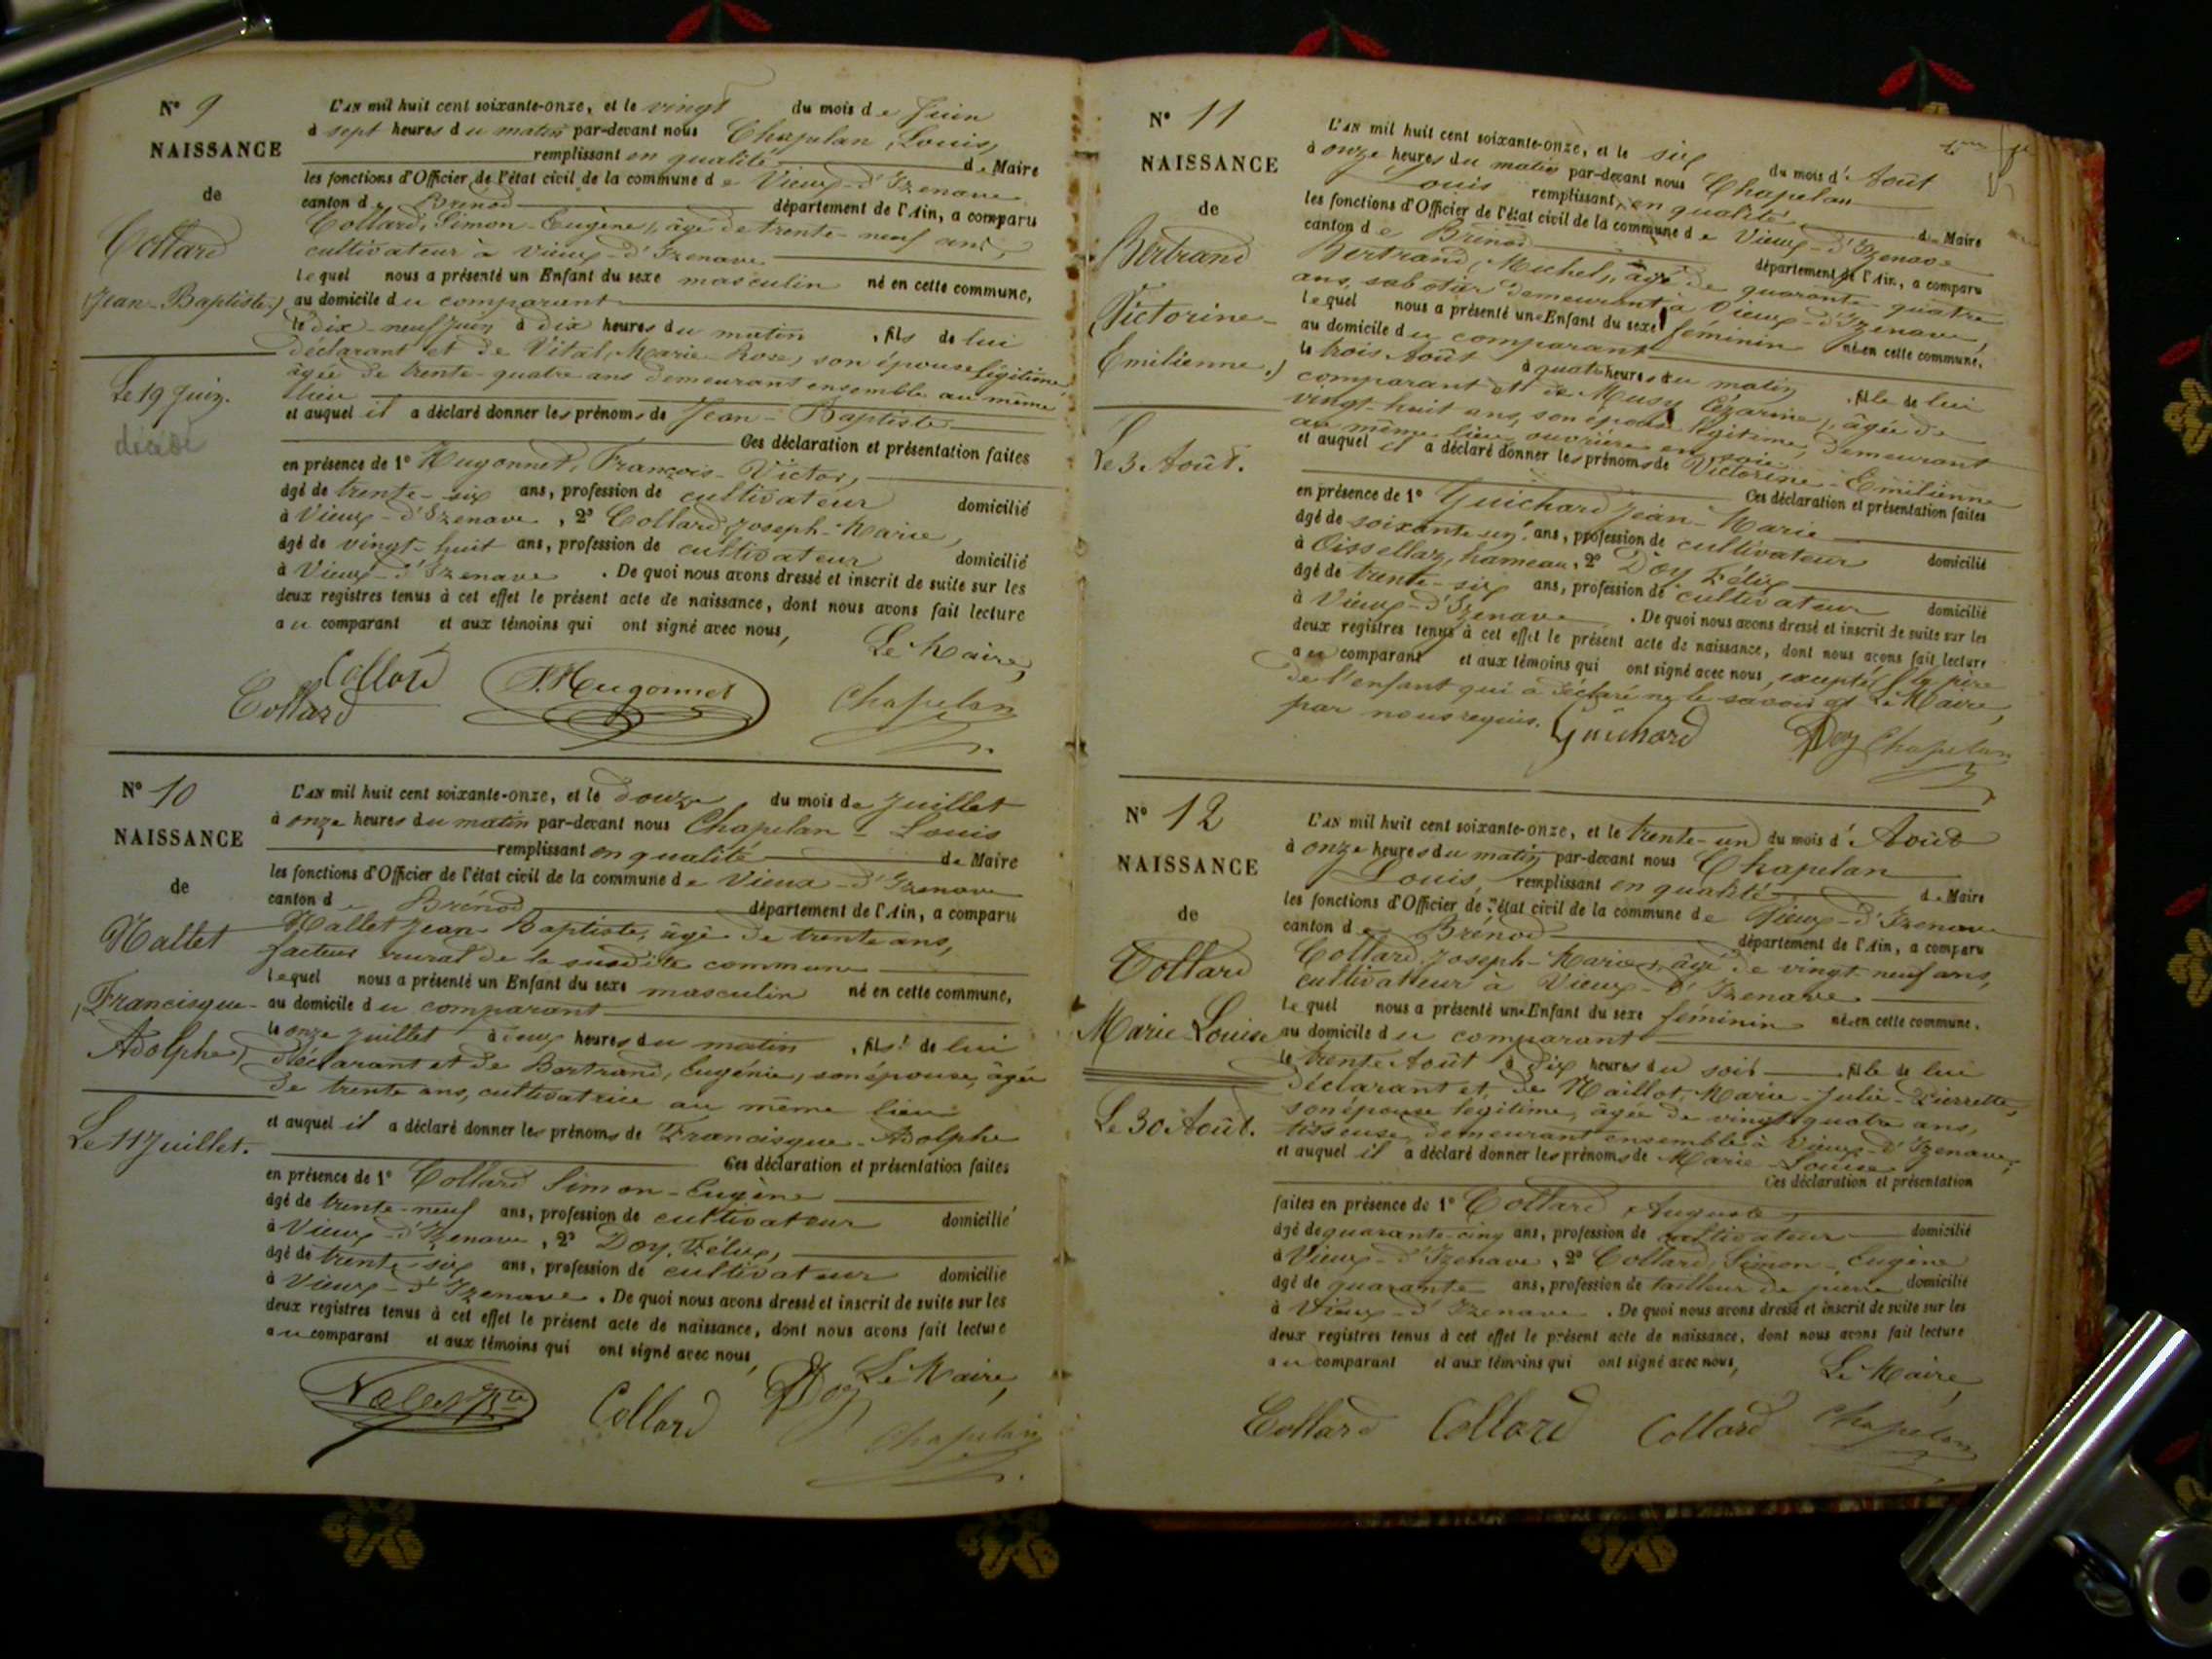 N° 9
NAISSANCE
de
Collard
(Jean-Baptiste)
Le 19 Juin.
décédé
L'AN mil huit cent soixante-onze, et le vingt du mois de Juin
à sept heures du matin par-devant nous Chapelan, Louis,
remplissant en qualité de Maire
les fonctions d'Officier de l'état civil de la commune de Vieux-d'Izenave
canton de Brénod département de l'Ain, a comparu
Collard, Simon-Eugène, âgé de trente-neuf ans,
cultivateur à Vieux-d'Izenave
lequel nous a présenté un Enfant du sexe masculin né en cette commune,
au domicile du comparant
le dix-neuf Juin à dix heures du matin, fils de lui
déclarant et de Vital, Marie-Rose, son épouse légitime
âgée de trente-quatre ans demeurant ensemble au même
lieu
et auquel il a déclaré donner les prénoms de Jean-Baptiste
Ces déclaration et présentation faites
en présence de 1° Hugonnet, François-Victor,
âgé de trente-six ans, profession de cultivateur domicilié
à Vieux-d'Izenave, 2° Collard Joseph-Marie,
âgé de vingt-huit ans, profession de cultivateur domicilié
à Vieux-d'Izenave. De quoi nous avons dressé et inscrit de suite sur les
deux registres tenus à cet effet le présent acte de naissance, dont nous avons fait lecture
au comparant et aux témoins qui ont signé avec nous,
Le Maire,
Collard
Collard Hugonnet Chapelan
N° 10
NAISSANCE
de
Nallet
(Francisque-
Adolphe)
Le 11 Juillet.
L'AN mil huit cent soixante-onze, et le douze du mois de Juillet
à onze heures du matin par-devant nous Chapelan-Louis
remplissant en qualité de Maire
les fonctions d'Officier de l'état civil de la commune de Vieux-d'Izenave
canton de Brénod département de l'Ain, a comparu
Nallet Jean-Baptiste, âgé de trente ans,
facteur rural de la susdite commune
lequel nous a présenté un Enfant du sexe masculin né en cette commune,
au domicile du comparant
le onze Juillet à deux heures du matin, fils de lui
déclarant et de Bertrand, Eugénie, son épouse, âgée
de trente ans, cultivatrice au même lieu
et auquel il a déclaré donner les prénoms de Francisque-Adolphe
Ces déclaration et présentation faites
en présence de 1° Collard Simon-Eugène
âgé de trente-neuf ans, profession de cultivateur domicilié
à Vieux-d'Izenave, 2° Doy, Félix,
âgé de trente-six ans, profession de cultivateur domicilié
à Vieux-d'Izenave. De quoi nous avons dressé et inscrit de suite sur les
deux registres tenus à cet effet le présent acte de naissance, dont nous avons fait lecture
au comparant et aux témoins qui ont signé avec nous,
Le Maire,
Collard Doy Chapelan
N° 11
NAISSANCE
de
Bertrand
(Victorine-
Emilienne.)
Le 3 Août.
L'AN mil huit cent soixante-onze, et le six du mois d'Août
à onze heures du matin par-devant nous Chapelan
Louis remplissant en qualité de Maire
les fonctions d'Officier de l'état civil de la commune de Vieux-d'Izenave
canton de Brénod département de l'Ain, a comparu
Bertrand, Michel, âgé de quarante-quatre
ans, sabotier demeurant à Vieux-d'Izenave,
lequel nous a présenté une Enfant du sexe féminin née en cette commune,
au domicile du comparant
le trois Août à quatre heures du matin, fille de lui
comparant et de Musy Cézarine, âgée de
vingt-huit ans, son épouse légitime, demeurant
au même lieu, ouvrière en soie
et auquel il a déclaré donner les prénoms de Victorine-Emilienne
Ces déclaration et présentation faites
en présence de 1° Guichard Jean-Marie
âgé de soixante-un ans, profession de cultivateur domicilié
à Oissellaz, hameau, 2° Doy Félix
âgé de trente-six ans, profession de cultivateur domicilié
à Vieux-d'Izenave. De quoi nous avons dressé et inscrit de suite sur les
deux registres tenus à cet effet le présent acte de naissance, dont nous avons fait lecture
au comparant et aux témoins qui ont signé avec nous, excepté le père
de l'enfant qui a déclaré ne le savoir Le Maire,
par nous requis. Guichard Doy Chapelan
N° 12
NAISSANCE
de
Collard
Marie-Louise
Le 30 Août.
L'AN mil huit cent soixante-onze, et le trente-un du mois d'Août
à onze heures du matin par-devant nous Chapelan
Louis, remplissant en qualité de Maire
les fonctions d'Officier de l'état civil de la commune de Vieux-d'Izenave
canton de Brénod département de l'Ain, a comparu
Collard Joseph-Marie, âgé de vingt-neuf ans,
cultivateur à Vieux-d'Izenave
lequel nous a présenté une Enfant du sexe féminin née en cette commune,
au domicile du comparant
le trente Août à dix heures du soir, fille de lui
déclarant et de Maillot, Marie-Julie-Pierrette,
son épouse légitime, âgée de vingt-quatre ans,
tisseuse, demeurant ensemble à Vieux-d'Izenave,
et auquel il a déclaré donner les prénoms de Marie-Louise
Ces déclaration et présentation
faites en présence de 1° Collard Auguste
âgé de quarante-cinq ans, profession de cultivateur domicilié
à Vieux-d'Izenave, 2° Collard, Simon-Eugène
âgé de quarante ans, profession de tailleur de pierre domicilié
à Vieux-d'Izenave. De quoi nous avons dressé et inscrit de suite sur les
deux registres tenus à cet effet le présent acte de naissance, dont nous avons fait lecture
au comparant et aux témoins qui ont signé avec nous,
Le Maire,
Collard Collard Collard Chapelan